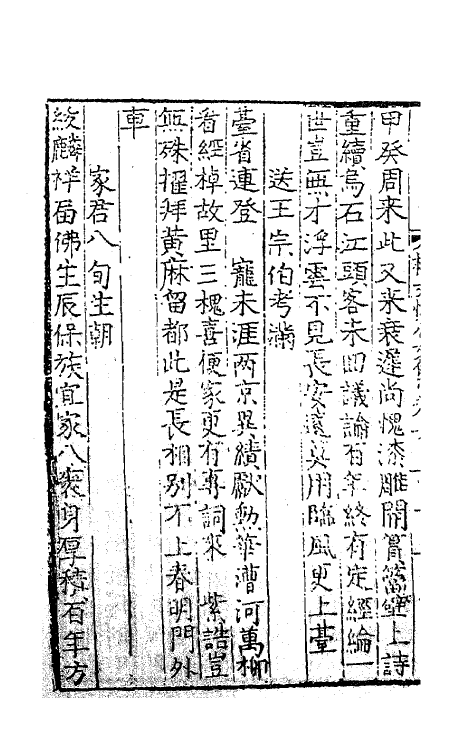 甲癸周来此又来衰遲尚愧漆雕開賞 壁上詩
重續烏石江頭客未囬議論百年終有定經綸一
世豈無才浮雲不見長安遠莫用臨風更上臺
送王宗伯考滿
臺省連登 寵未涯两京異績獻勳華漕河萬柳
看經棹故里三槐喜便家更有專詞來 紫誥豈
無殊擢拜黄麻留都此是長相别不上春明門外
車
家君八旬生朝
紱麟祥畱佛生辰保族宜家八袠身厚積百年方